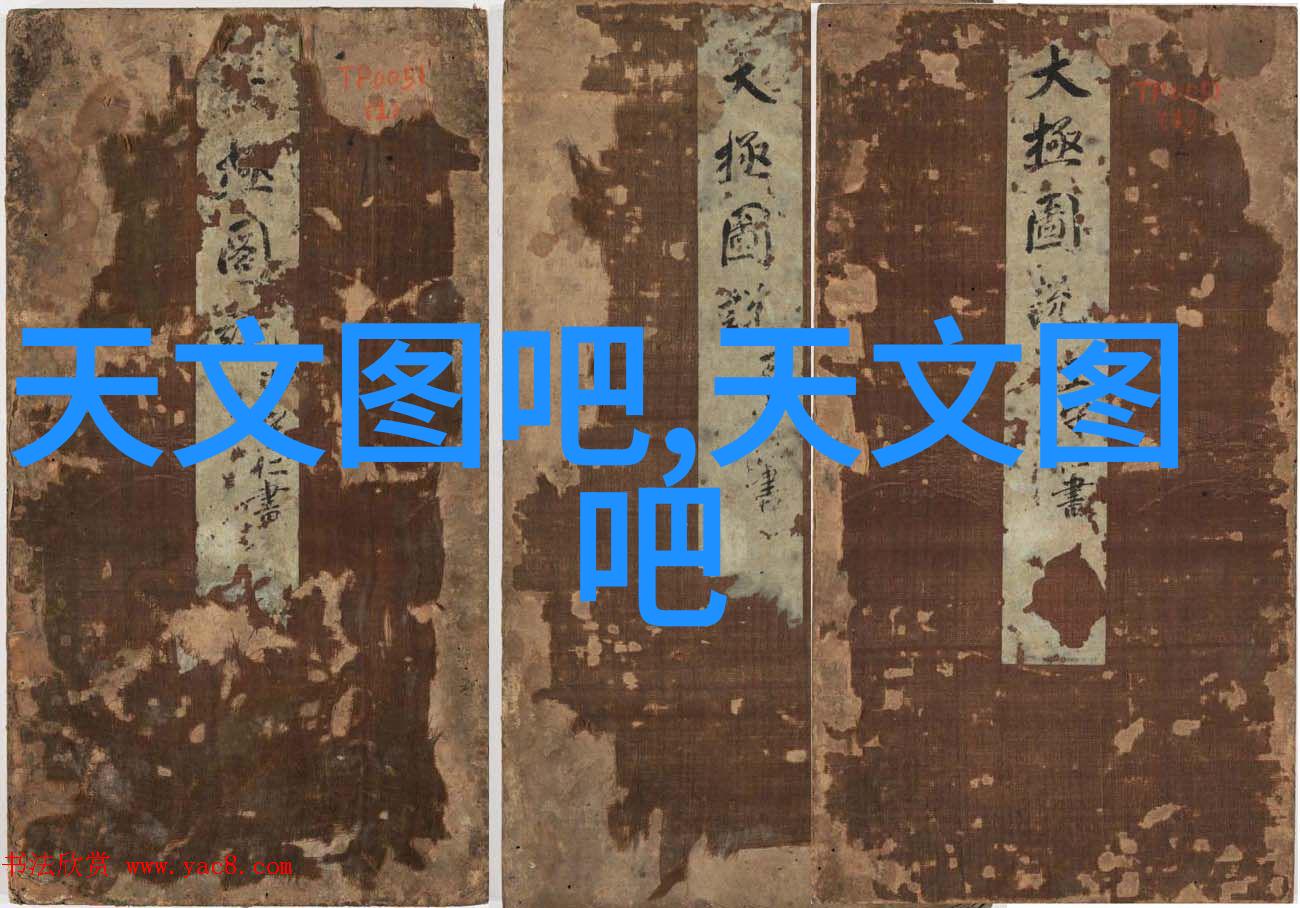 天文图吧,天文图
吧
TP0051
(1)
極圖
仁書
大極圖說
書
大極圖說
書
TP0051
书法欣赏 www.yac8.com